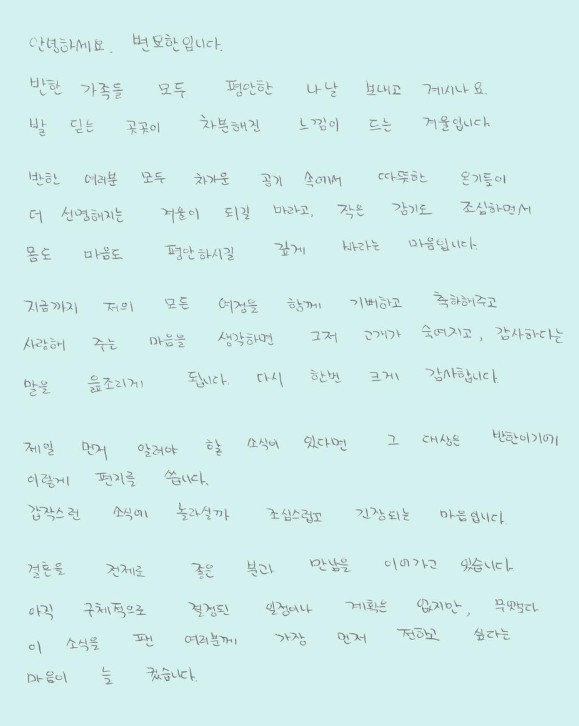 안녕하세요. 변요한입니다.
반한 가족들 모두 평안한 나날 보내고 계시나요.
발 딛는 곳곳이 차분해진 느낌이 드는 겨울입니다
반한 여러분 모두 차가운 공기 속에서 따뜻한 온기들이
더 선명해지는 겨울이 되길 바라고, 작은 감기도 조심하면서
몸도 마음도 평안하시길 깊게 바라는 마음입니다.
지금까지 저의 모든 여정을 함께 기뻐하고 축하해주고
사랑해 주는 마음을 생각하면 그저 고개가 숙여지고, 감사하다는
말을 읊조리게 됩니다. 다시 한번 크게 감사합니다.
제일 먼저 알려야 할 소식이 있다면 그 대상은 반한이기에
이렇게 편지를 씁니다.
갑작스런 소식에 놀라실까 조심스럽고 긴장되는 마음입니다
결혼을 전제로 좋은 분과 만남을 이어가고 있습니다
아직 구체적으로 결정된 일정이나 계획은 없지만, 무엇보다
이 소식을 팬 여러분께 가장 먼저 전하고 싶다는
마음이 늘 컸습니다.